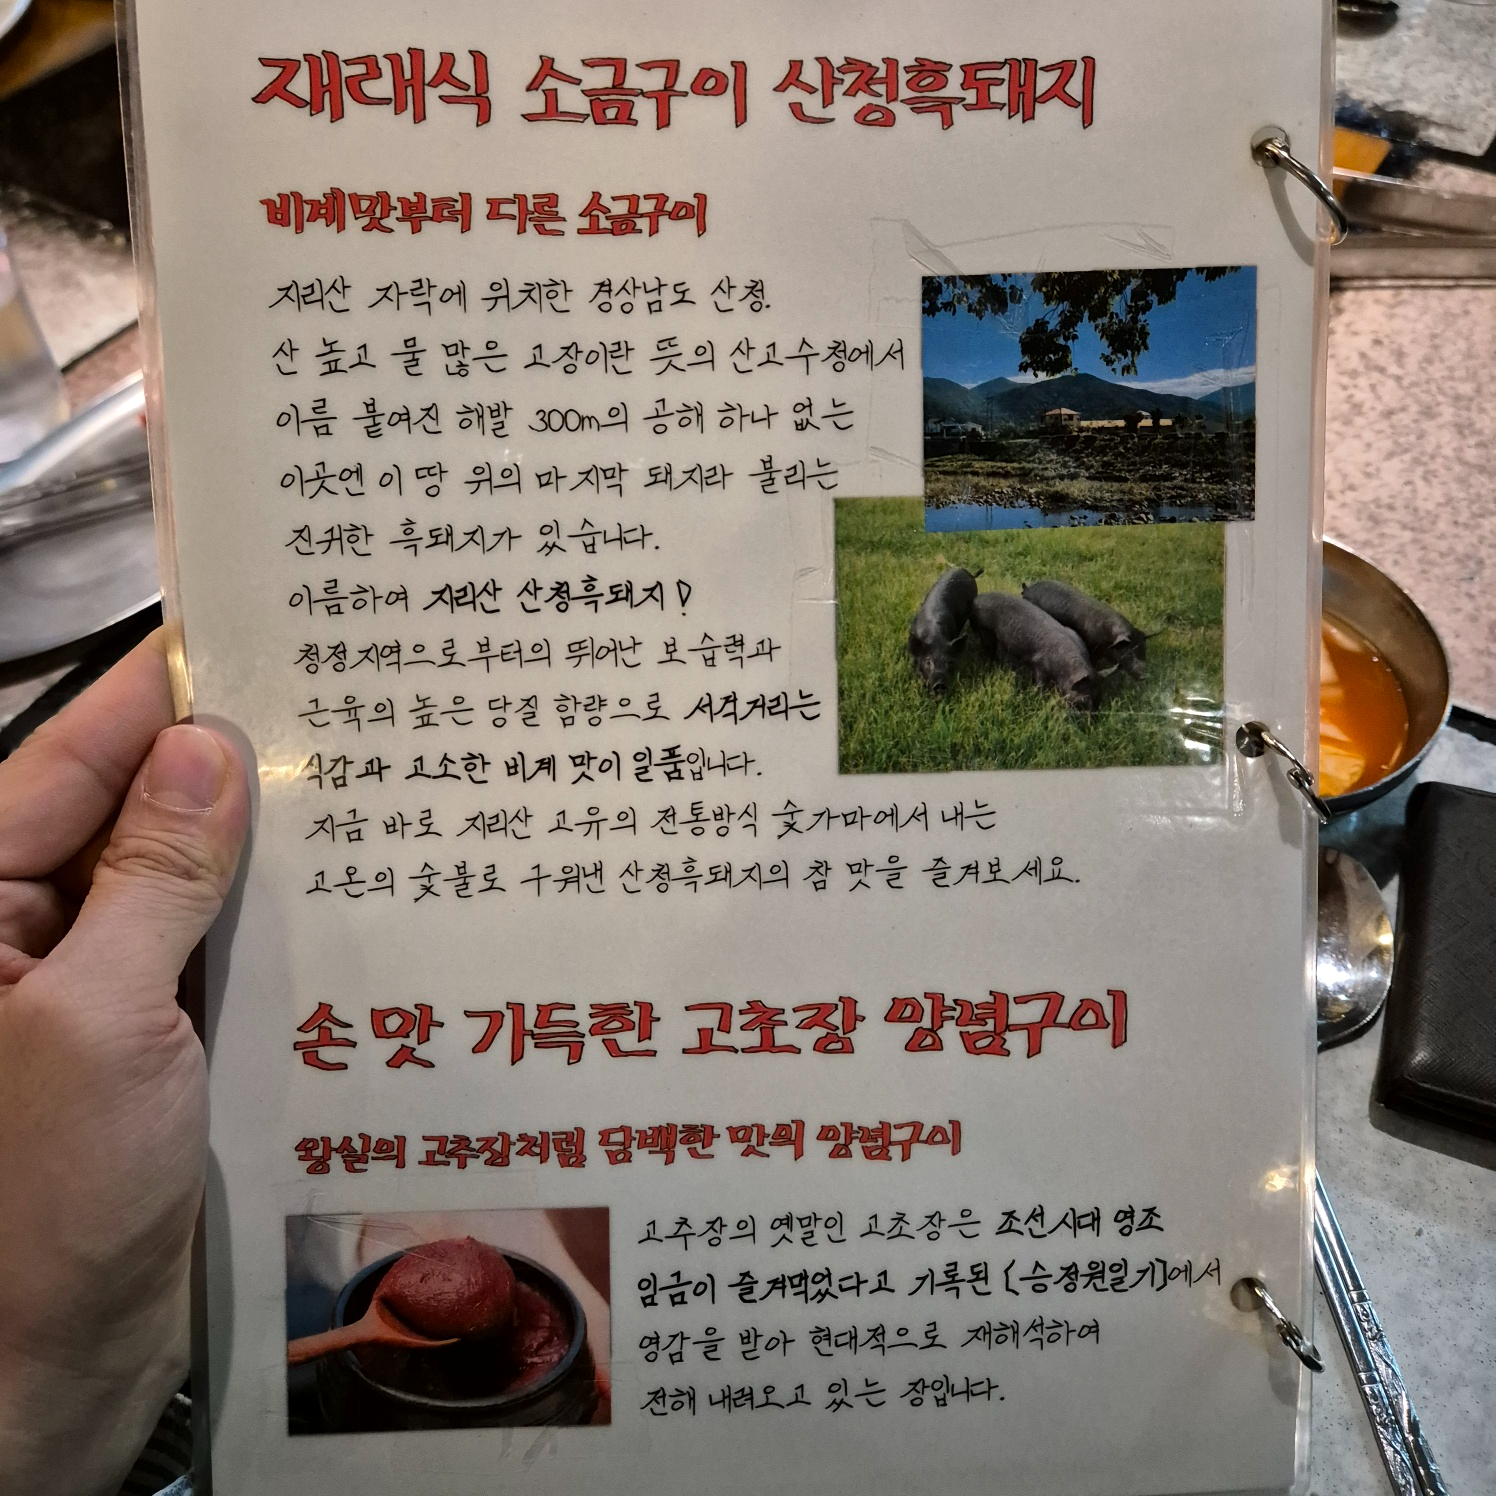 재래식 소금구이 산청흑돼지
비계맛부터 다른 소금구이
지리산 자락에 위치한 경상남도 산청.
산 높고 물 많은 고장이란 뜻의 산고수청에서
이름 붙여진 해발 300m의 공해 하나 없는
이곳엔 이 땅 위의 마지막 돼지라 불리는
진귀한 흑돼지가 있습니다.
이름하여 지리산 산청흑돼지!
청정지역으로부터의 뛰어난 보습력과
근육의 높은 당질 함량으로 서걱거리는
식감과 고소한 비계 맛이 일품입니다.
지금 바로 지리산 고유의 전통방식 숯가마에서 내는
고온의 숯불로 구워낸 산청흑돼지의 참 맛을 즐겨보세요.
손맛 가득한 고초장 양념구이
왕실의 고추장처럼 담백한 맛의 양념구이
고추장의 옛말인 고초장은 조선시대 영조
임금이 즐겨먹었다고 기록된 [승정원일기]에서
영감을 받아 현대적으로 재해석하여
전해 내려오고 있는 장입니다.